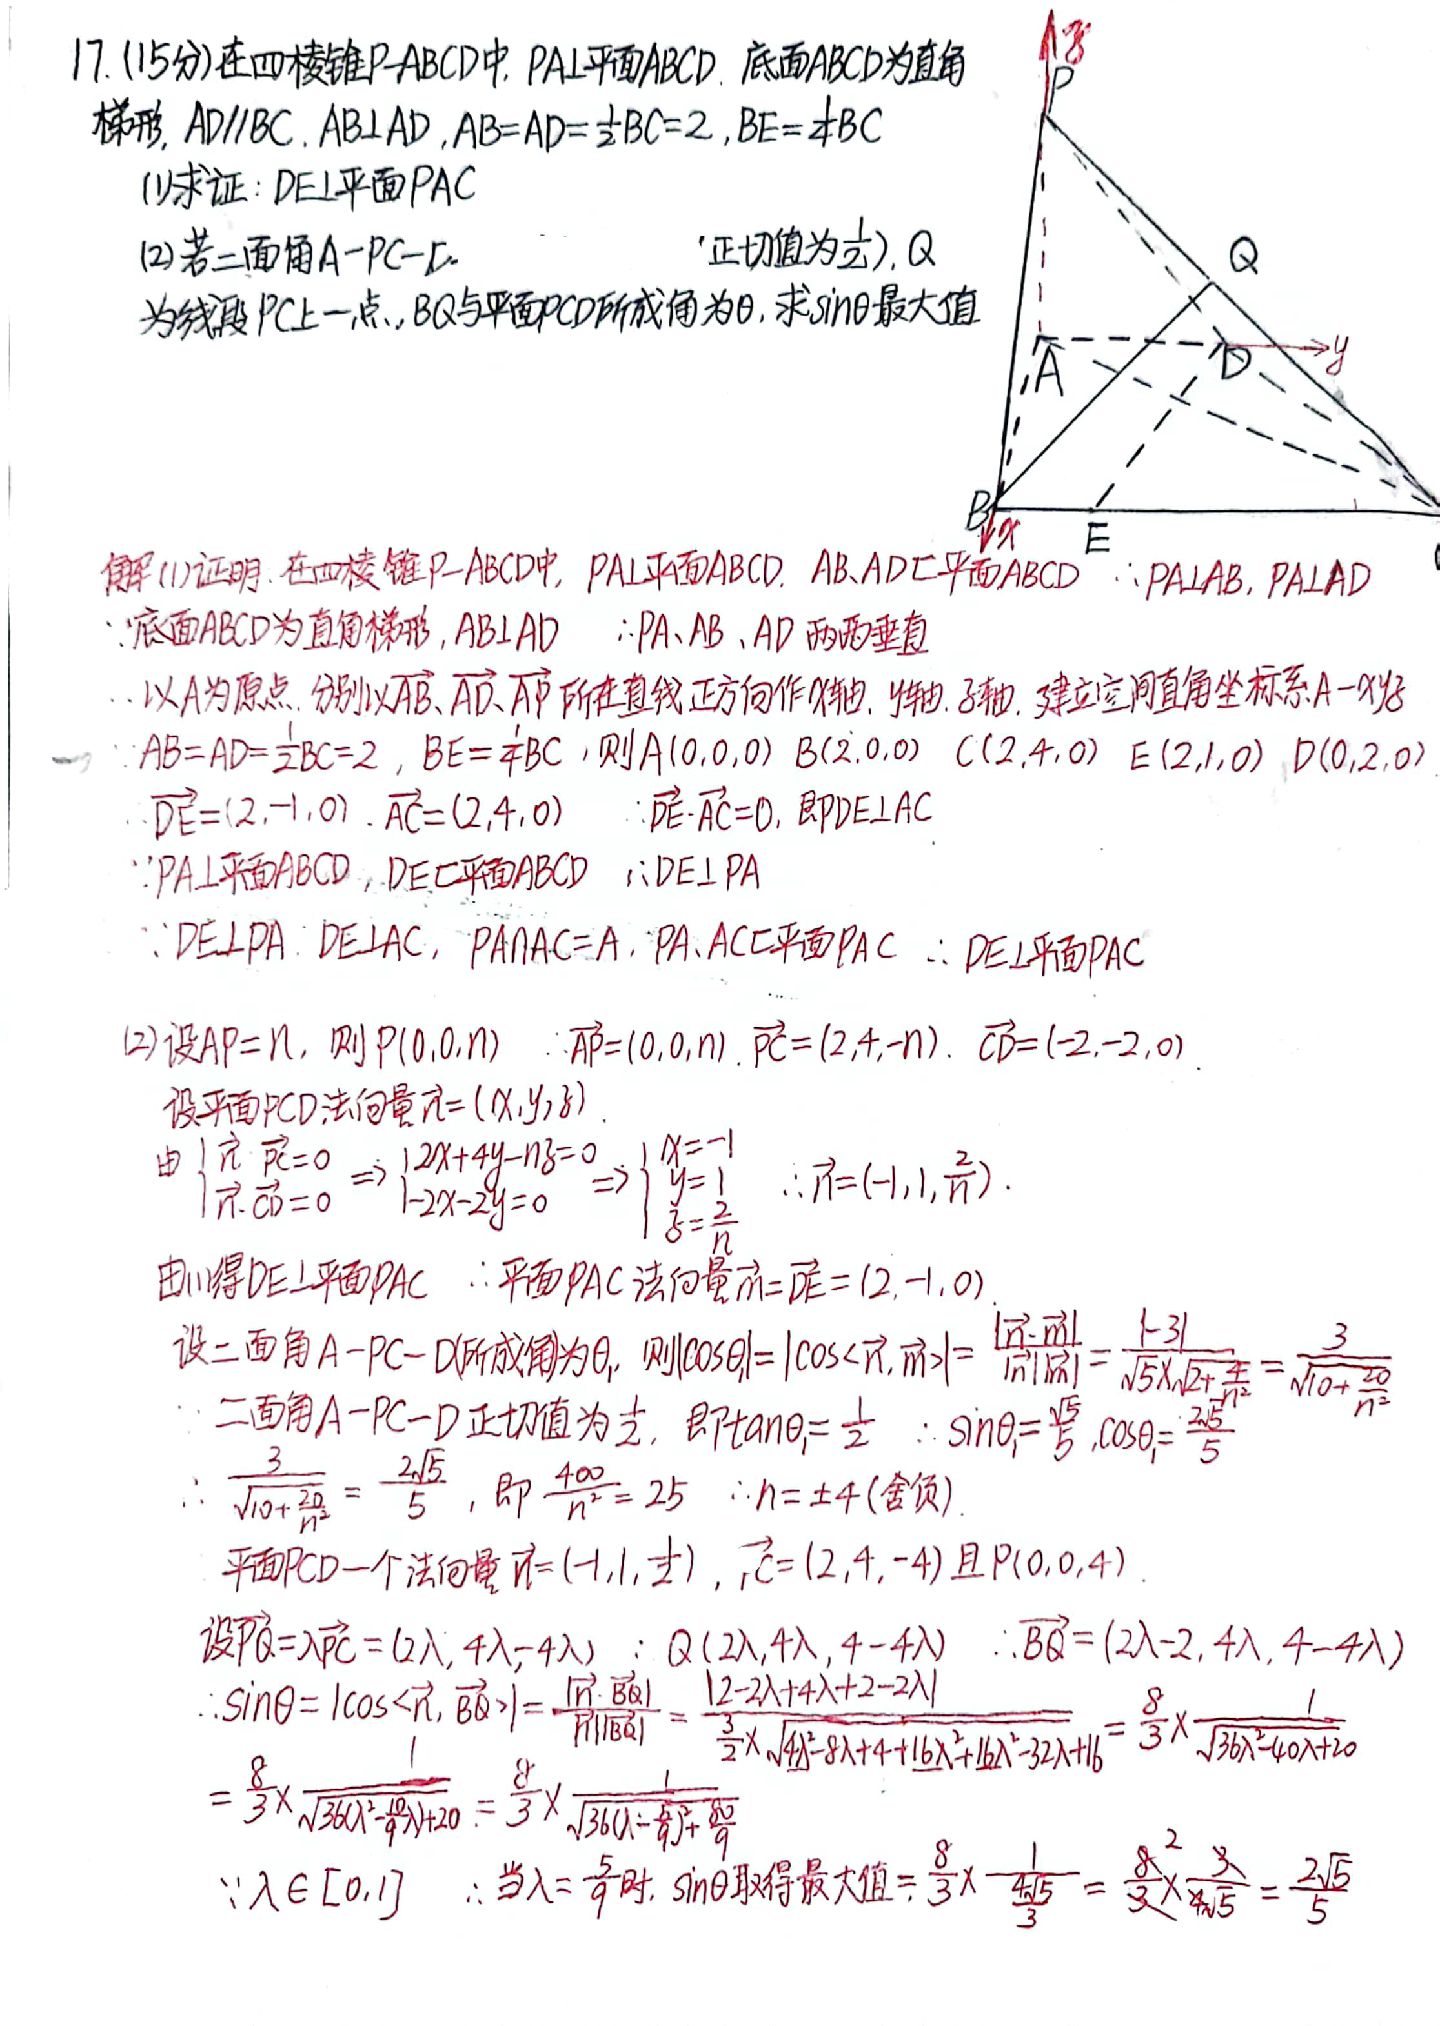 17.(15分)在四棱锥P-ABCD中, PA⊥平面ABCD. 底面ABCD为直角
梯形, AD//BC. AB⊥AD, AB=AD=1/2BC=2, BE=1/4BC
(1)求证: DE⊥平面PAC
(2)若二面角A-PC-D 正切值为1/2), Q
为线段PC上一点, BQ与平面PCD所成角为θ, 求sinθ最大值
z
P
Q
A
D
y
B
x
E
解(1)证明: 在四棱锥P-ABCD中, PA⊥平面ABCD. AB、AD⊂平面ABCD ∴PA⊥AB, PA⊥AD
∵底面ABCD为直角梯形, AB⊥AD ∴PA、AB、AD两两垂直
∴以A为原点. 分别以AB、AD、AP所在直线正方向作x轴. y轴. z轴. 建立空间直角坐标系A-xyz
∵AB=AD=1/2BC=2, BE=1/4BC, 则A(0,0,0) B(2,0,0) C(2,4,0) E(2,1,0) D(0,2,0)
∴DE=(2,-1,0). AC=(2,4,0) ∴DE·AC=0, 即DE⊥AC
∵PA⊥平面ABCD, DE⊂平面ABCD ∴DE⊥PA
∵DE⊥PA DE⊥AC, PA∩AC=A, PA、AC⊂平面PAC ∴DE⊥平面PAC
(2)设AP=n, 则P(0,0,n) ∴AP=(0,0,n). PC=(2,4,-n). CD=(-2,-2,0).
设平面PCD法向量n=(x,y,z).
由{n·PC=0 n·CD=0 ⇒ {2x+4y-nz=0 -2x-2y=0 ⇒ {x=-1 y=1 z=2/n ∴n=(-1,1,2/n).
由(1)得DE⊥平面PAC ∴平面PAC法向量m=DE=(2,-1,0).
设二面角A-PC-D(所成角)为θ₁, 则|cosθ₁|=|cos<n,m>|=|n·m|/|n||m|=|-3|/√5×√2+4/n²=3/√10+20/n²
∵二面角A-PC-D正切值为1/2, 即tanθ₁=1/2 ∴sinθ₁=√5/5, cosθ₁=2√5/5
∴3/√10+20/n²=2√5/5, 即400/n²=25 ∴n=±4(舍负).
平面PCD一个法向量n=(-1,1,1/2), C=(2,4,-4)且P(0,0,4).
设PQ=λPC=(2λ,4λ,-4λ) ∴Q(2λ,4λ,4-4λ) ∴BQ=(2λ-2,4λ,4-4λ)
∴sinθ=|cos<n,BQ>|=|n·BQ|/|n||BQ|=|2-2λ+4λ+2-2λ|/3/2×√4λ²-8λ+4+16λ²+16λ²-32λ+16=8/3×1/√36λ²-40λ+20
=8/3×1/√36(λ²-10/9λ)+20=8/3×1/√36(λ-5/9)²+80/9
∵λ∈[0,1] ∴当λ=5/9时. sinθ取得最大值=8/3×1/4√5/3=8/3×3/4√5=2√5/5